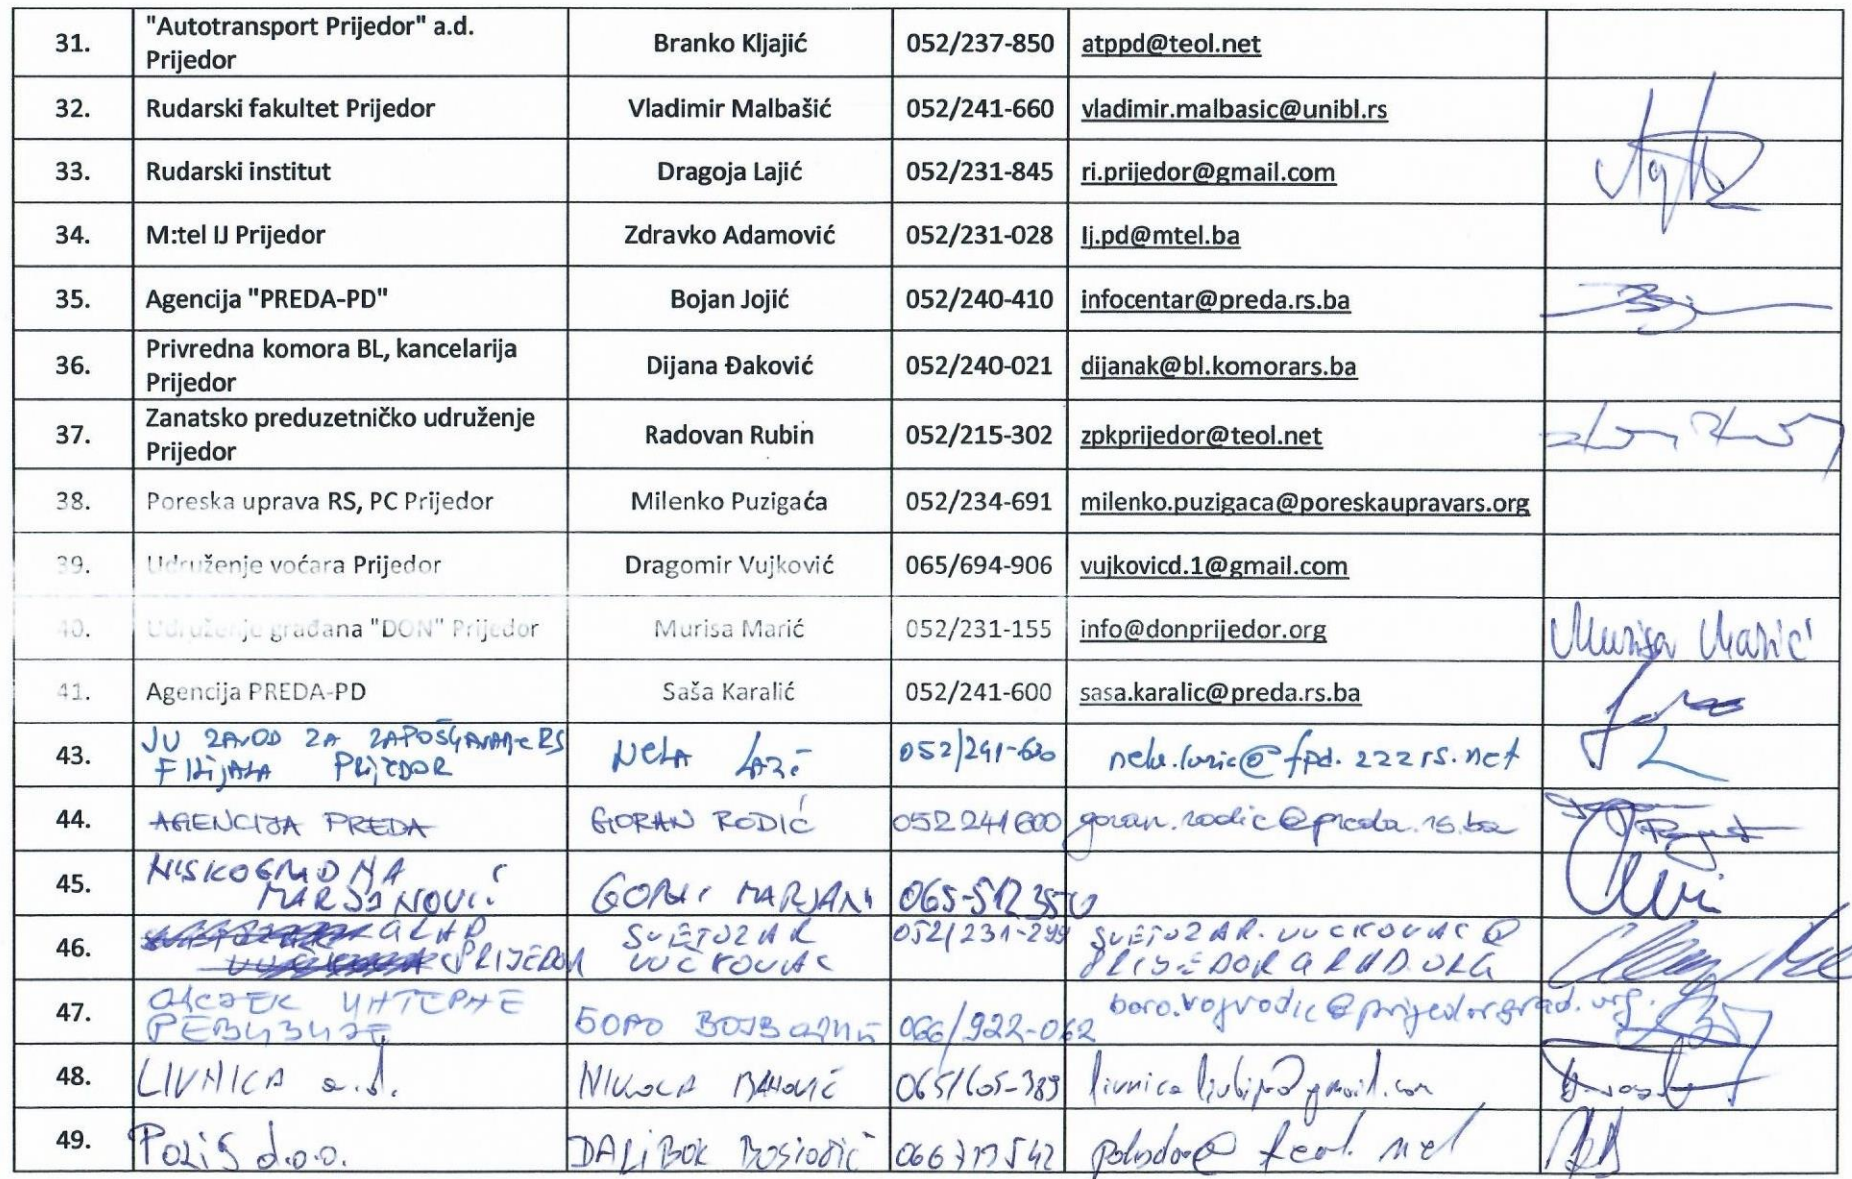 31. "Autotransport Prijedor" a.d. Prijedor Branko Kljajić 052/237-850 atppd@teol.net
32. Rudarski fakultet Prijedor Vladimir Malbašić 052/241-660 vladimir.malbasic@unibl.rs
33. Rudarski institut Dragoja Lajić 052/231-845 ri.prijedor@gmail.com
34. M:tel IJ Prijedor Zdravko Adamović 052/231-028 Ij.pd@mtel.ba
35. Agencija "PREDA-PD" Bojan Jojić 052/240-410 infocentar@preda.rs.ba
36. Privredna komora BL, kancelarija Prijedor Dijana Đaković 052/240-021 dijanak@bl.komorars.ba
37. Zanatsko preduzetničko udruženje Prijedor Radovan Rubin 052/215-302 zpkprijedor@teol.net
38. Poreska uprava RS, PC Prijedor Milenko Puzigaća 052/234-691 milenko.puzigaca@poreskaupravars.org
39. Udruženje voćara Prijedor Dragomir Vujković 065/694-906 vujkovicd.1@gmail.com
40. Udruženje građana "DON" Prijedor Murisa Marić 052/231-155 info@donprijedor.org Murisa Marić
41. Agencija PREDA-PD Saša Karalić 052/241-600 sasa.karalic@preda.rs.ba
43. JU ZAVOD ZA ZAPOŠLJAVANJE RS FILIJALA PRIJEDOR NELA
44. AGENCIJA PREDA GORAN RODIĆ 052 241 600 goran.rodic@preda.rs.ba
45. NISKOGRADNJA MARJANOVIĆ
46. GRAD PRIJEDOR SVETOZAR VUČKOVAC 052/231-299 SVETOZAR.VUCKOVAC@PRIJEDORGRAD.ORG
47. ОДСЈЕК ИНТЕРНЕ РЕВИЗИЈЕ БОРО 066/922-062 boro.vojvodic@prijedorgrad.org
48. LIVNICA a.d. NIKOLA 065/605-389
49. DALIBOR